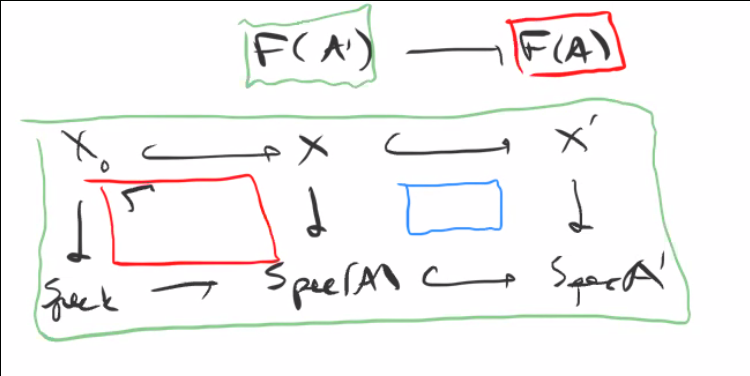 F(A') → F(A)
X₀ ↪ X ↪ X'
↓ ↓ ↓
Spec k → Spec(A) ↪ Spec A'